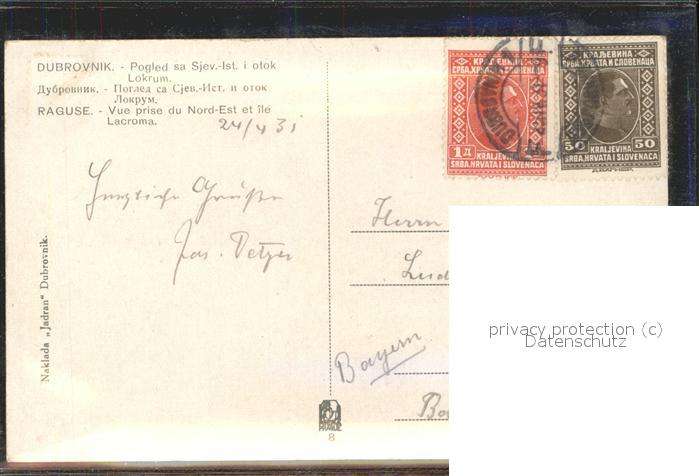 DUBROVNIK. - Pogled sa Sjev.-Ist. i otok
Lokrum.
Дубровник. - Поглед са Сјев.-Ист. и оток
Локрум.
RAGUSE. - Vue prise du Nord-Est et île
Lacroma.
24/4 31
Herzliche Grüße
Jos.
Naklada „Jadran" Dubrovnik.
КРАЉЕВИНА
СРБА, ХРВАТА И СЛОВЕНАЦА
1 Д
KRALJEVINA
SRBA, HRVATA I SLOVENACA
КРАЉЕВИНА
СРБА, ХРВАТА И СЛОВЕНАЦА
50 50
KRALJEVINA
SRBA, HRVATA I SLOVENACA
Herrn
Bayern
8
privacy protection (c)
Datenschutz